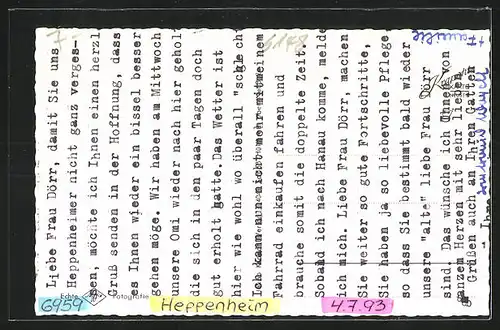 Liebe Frau Dörr, damit Sie uns
Heppenheimer nicht ganz verges-
sen, möchte ich Ihnen einen herzl.
Gruß senden in der Hoffnung, dass
es Ihnen wieder ein bissel besser
gehen möge. Wir haben am Mittwoch
unsere Omi wieder nach hier geholt
die sich in den paar Tagen doch
gut erholt hatte. Das Wetter ist
hier wie wohl wo überall "schlecht
Ich kann nun nicht mehr mit meinem
Fahrrad einkaufen fahren und
brauche somit die doppelte Zeit.
Sobald ich nach Hanau komme, melde
ich mich. Liebe Frau Dörr, machen
Sie weiter so gute Fortschritte,
Sie haben ja so liebevolle Pflege
so dass Sie bestimmt bald wieder
unsere "alte" liebe Frau Dörr
sind. Das wünsche ich Ihnen von
ganzem Herzen mit sehr lieben
Grüßen auch an Ihren Gatten
- Ihre
+ Familie
5178
Echte Fotografie
6959
Heppenheim
4.7.93